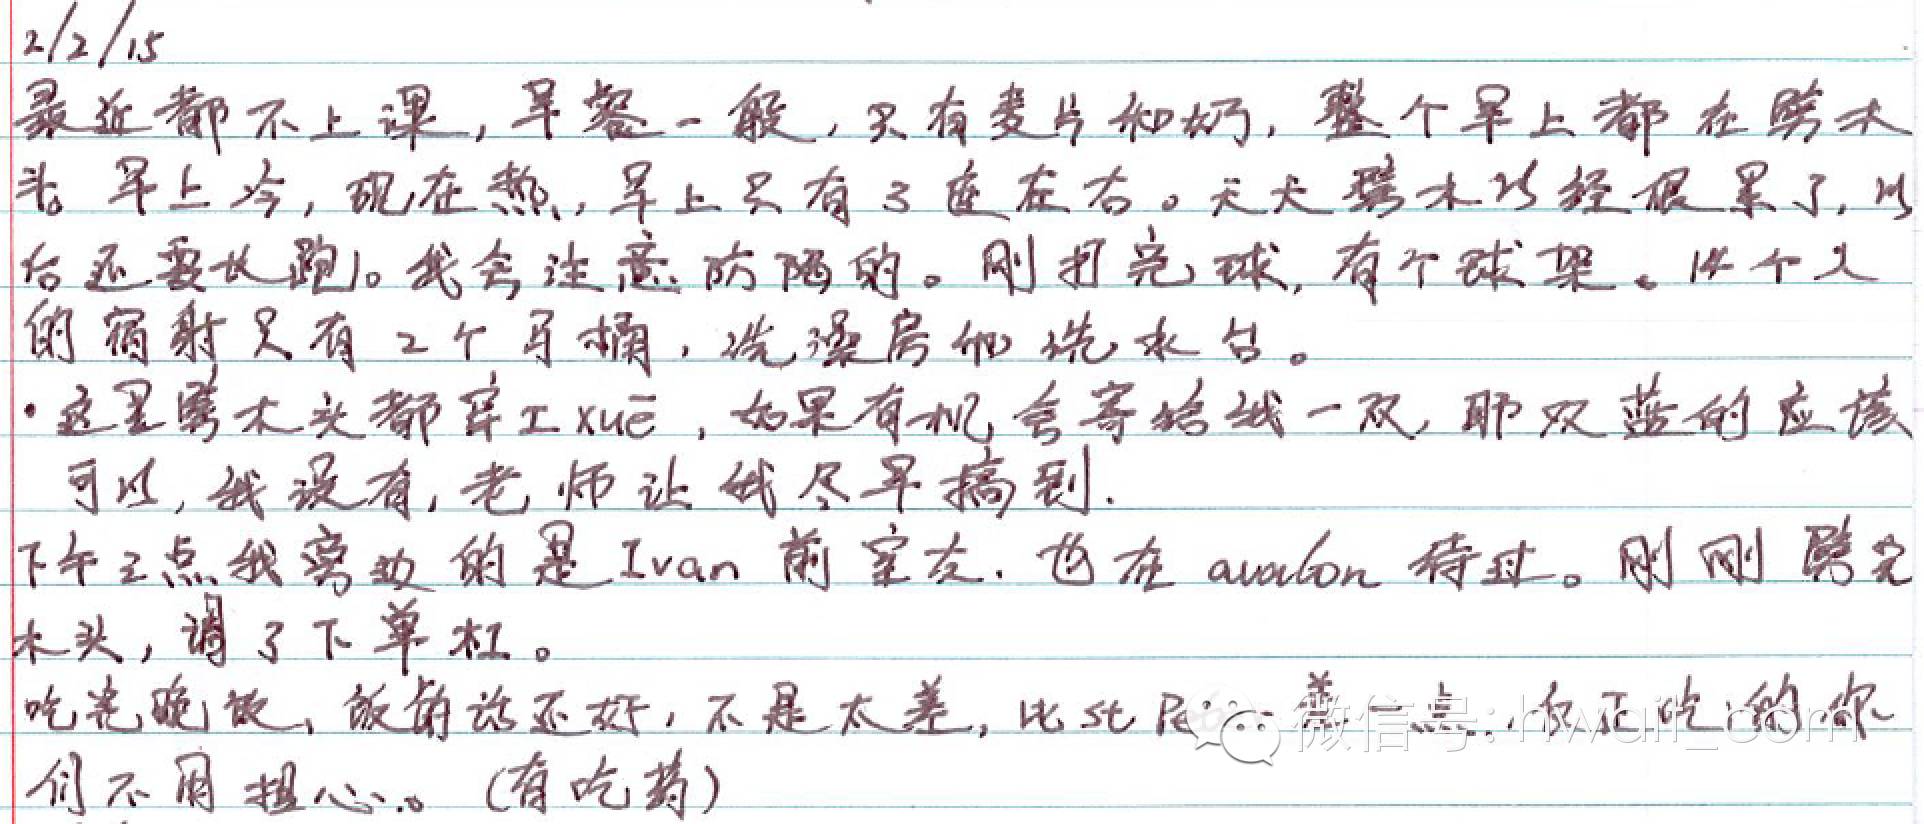 2/2/15
最近都不上课,早餐一般,只有麦片和奶,整个早上都在劈木
头。早上冷,现在热,早上只有3度左右。天天劈木以经很累了,以
后还要长跑。我会注意防晒的。刚打完球,有个球架。14个人
的宿射只有2个马桶,洗澡房和洗水台。
·这里劈木头都穿工xuē,如果有机会寄给我一双,那双蓝的应该
可以,我没有,老师让我尽早搞到.
下午2点我旁边的是Ivan前室友.也在avalon待过。刚刚劈完
木头,调了下单杠。
吃完晚饭,饭的话还好,不是太差,比st 差一点,反正吃的你
们不用担心。(有吃药)
微信号:hwaii_com